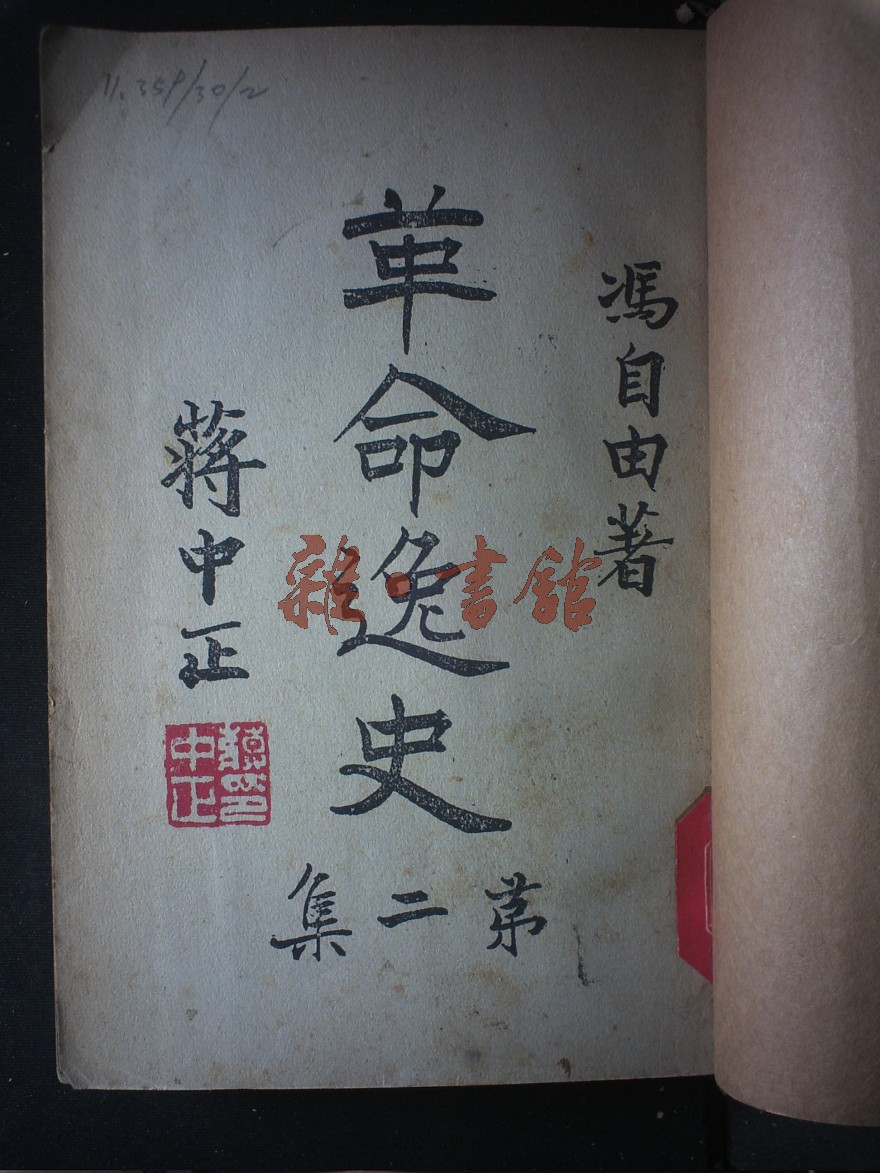 11.359/30/2
馮自由著
革命逸史
第二集
蔣中正
蔣中正印
雜·書館